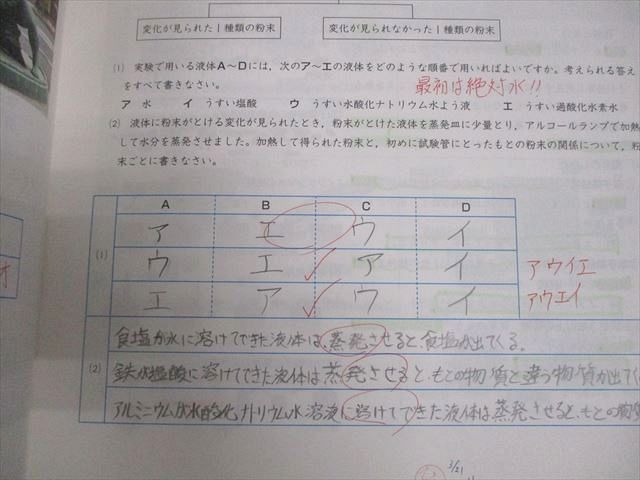 変化が見られた1種類の粉末 変化が見られなかった1種類の粉末
(1) 実験で用いる液体A〜Dには,次のア〜エの液体をどのような順番で用いればよいですか。考えられる答え
をすべて書きなさい。 最初は絶対水!!
ア 水 イ うすい塩酸 ウ うすい水酸化ナトリウム水よう液 エ うすい過酸化水素水
(2) 液体に粉末がとける変化が見られたとき,粉末がとけた液体を蒸発皿に少量とり,アルコールランプで加熱
して水分を蒸発させました。加熱して得られた粉末と,初めに試験管にとったもとの粉末の関係について,粉
末ごとに書きなさい。
A B C D
(1)
ア エ ウ イ
ウ エ ア イ アウイエ
エ ア ウ イ アウエイ
(2)
食塩が水に溶けてできた液体は、蒸発させると、食塩が出てくる。
鉄が塩酸に溶けてできた液体は蒸発させると、もとの物質と違う物質が出てく
アルミニウムが水酸化ナトリウム水溶液に溶けてできた液体は蒸発させると、もとの物質
3/21